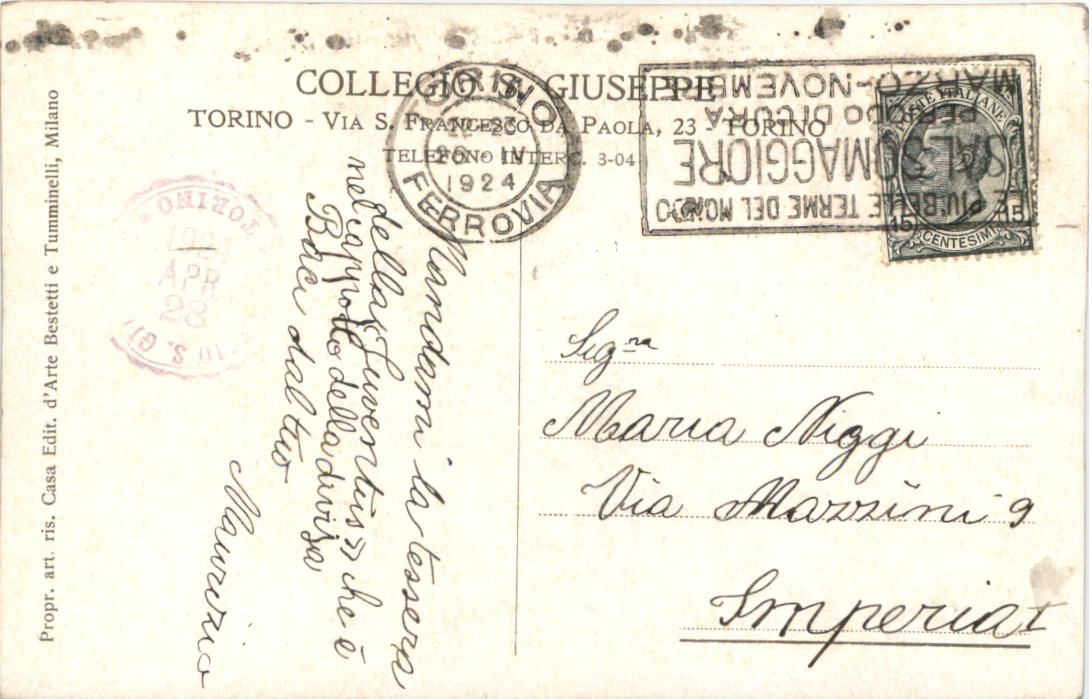 COLLEGIO S. GIUSEPPE
TORINO - VIA S. FRANCESCO DA PAOLA, 23 - TORINO
TELEFONO INTERC. 3-04
TORINO
28 · IV
1924
FERROVIA
LE PIU' BELLE TERME DEL MONDO
SALSOMAGGIORE
PERIODO DI CURA
MARZO-NOVEMB
POSTE ITALIANE
15 15
CENTESIMI
TORINO
1924
APR
28
IO S. GI
Mandami la tessera
della «Juventus» che è
nel cappotto della divisa
Baci dal tuo
Maurizio
Sigra
Maria Niggi
Via Mazzini 9
Imperia I
Propr. art. ris. Casa Edit. d'Arte Bestetti e Tumminelli, Milano